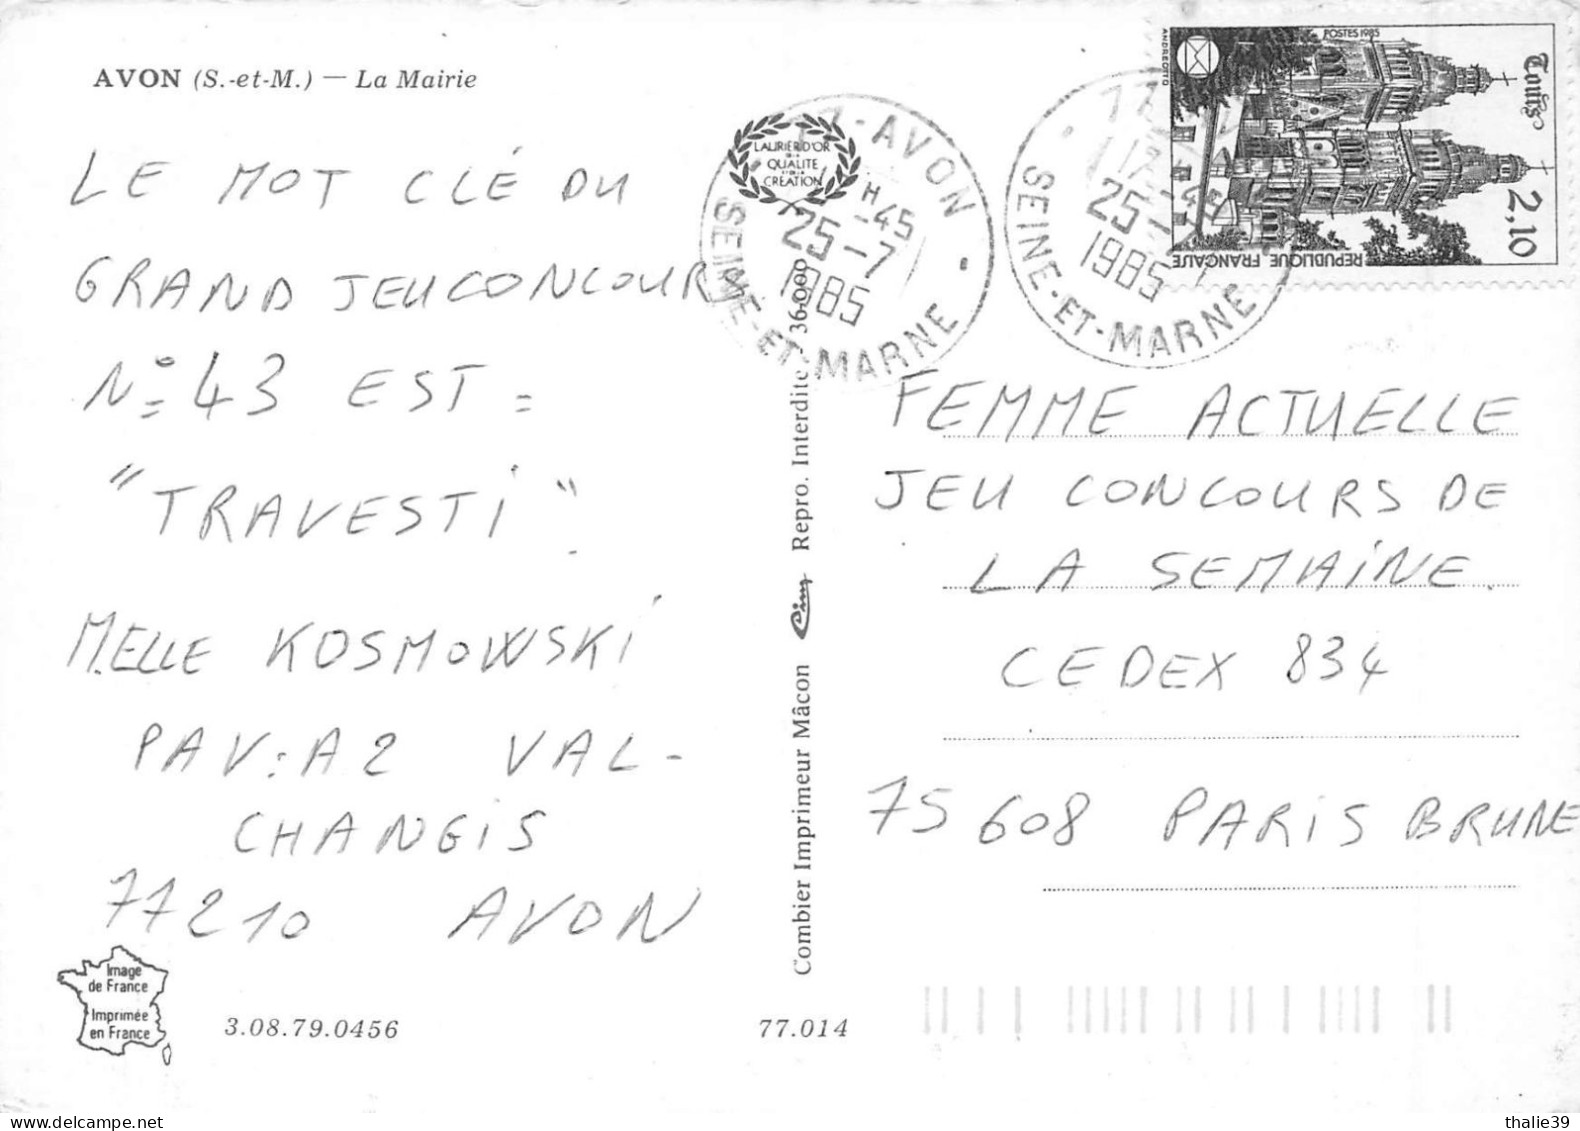 AVON (S.-et-M.) — La Mairie
LE MOT CLÉ DU
GRAND JEU CONCOURS
N° 43 EST =
"TRAVESTI".
MELLE KOSMOWSKI
PAV: A2 VAL-
CHANGIS
77210 AVON
Image
de France
Imprimée
en France
3.08.79.0456
77.014
Combier Imprimeur Mâcon Cim Repro. Interdite 36.000
LAURIER D'OR
DE LA
QUALITÉ
ET DE LA
CRÉATION
77-AVON
H
-45
25-7
1985
SEINE-ET-MARNE
77
25-7
1985
SEINE-ET-MARNE
POSTES 1985
ANDREOTTO
Tours
2,10
REPUBLIQUE FRANÇAISE
FEMME ACTUELLE
JEU CONCOURS DE
LA SEMAINE.
CEDEX 834
75 608 PARIS BRUNE
thalie39